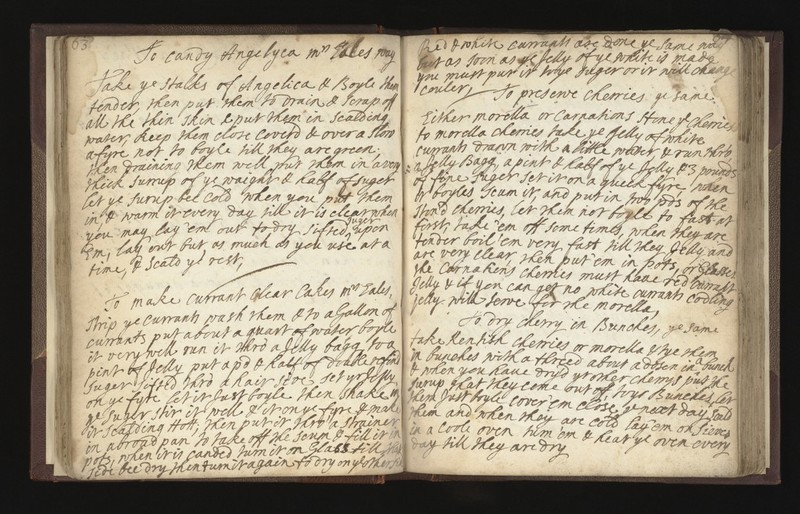 63
To candy Angelyca mrs Eales way
Take ye Stalks of Angelica & Boyle them
tender, then put them to drain & Scrap off
all the thin Skin & put them in Scalding
water, keep them close Coverd & over a Slow
a fyre not to boyle till they are green,
then draining them well put them in a very
thick Surrup of ye waight & half of Suger
let ye Surup bee Cold when you put them
in & warm it every day till it is clear when
you may lay 'em out to dry, Sifted Suger upon
'Em, lay out but as much as you use at a
time, & Scald ye rest,
To make Currant Clear Cakes mrs Eales,
Strip ye currants wash them & to a Gallon of
currants put about a quart of water boyle
it very well run it thro a Jelly bagg, to a
pint of Jelly put a pd & half of double refind
Suger Sifted thro a hair Seve. Set ye Jelly
on ye fyre let it Just boyle then Shake in
ye Suger Stir it well & it on ye fyre & make
it Scalding Hott, then put it thro a Strainer
in a broad pan to take off the Scum & fill it in
pots, when it is candied turn it on Glass till
Side bee dry then turn it again to dry on ye other
Red & white currants are done ye same way
but as Soon as ye Jelly of ye white is made
you must put it to ye Suger or it will change
couler,
To preserve Cherries ye same,
Either morella or Carnations Stone ye Cherries
to morella cherries take ye Jelly of white
currants drawn with a little water & run thro
a Jelly Bagg, a pint & half of ye Jelly & 3 pounds
of fine Suger Set it on a quick fyre when
it boyles Scum it, and put in two pds of the
Ston'd cherries, let them not boyle to fast at
first, take 'em off some times, when they are
tender boil 'em very fast till they Jelly and
are very clear then put 'em in pots, or Glasses
the Carnations cherries must have red currant
Jelly & if you can get no white currants codling
Jelly will serve for the morella,
To dry cherry in Bunches, ye same
take Kentish Cherries or morella & tye them
in bunches with a threed about a dosen in a bunch
& when you have dry'd yr other cherrys put the
Surup that they come out of to yr Bunches, let
them Just boyle cover em close, ye next day Scald
them and when they are cold lay 'em on Sieves
in a coole oven turn 'em & heat ye oven every
day till they are dry